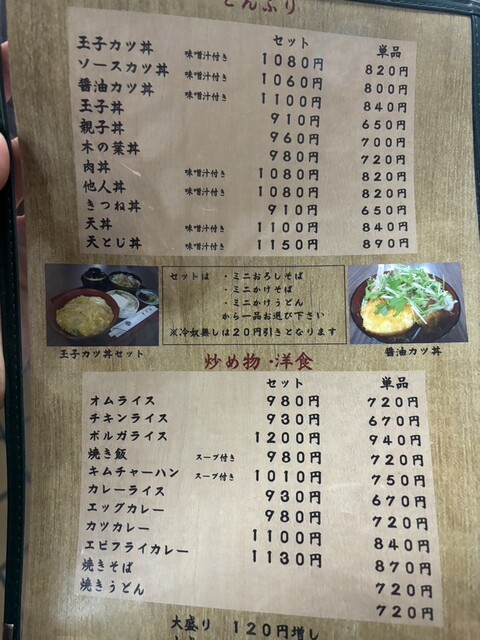 どんぶり
セット 単品
玉子カツ丼 味噌汁付き 1080円 820円
ソースカツ丼 味噌汁付き 1060円 800円
醤油カツ丼 味噌汁付き 1100円 840円
玉子丼 910円 650円
親子丼 960円 700円
木の葉丼 980円 720円
肉丼 味噌汁付き 1080円 820円
他人丼 味噌汁付き 1080円 820円
きつね丼 910円 650円
天丼 味噌汁付き 1100円 840円
天とじ丼 味噌汁付き 1150円 890円
セットは ・ミニおろしそば
・ミニかけそば
・ミニかけうどん
から一品お選び下さい
※冷奴無しは20円引きとなります
玉子カツ丼セット
醤油カツ丼
炒め物・洋食
セット 単品
オムライス 980円 720円
チキンライス 930円 670円
ボルガライス 1200円 940円
焼き飯 スープ付き 980円 720円
キムチャーハン スープ付き 1010円 750円
カレーライス 930円 670円
エッグカレー 980円 720円
カツカレー 1100円 840円
エビフライカレー 1130円 870円
焼きそば 720円
焼きうどん 720円
大盛り 120円増し